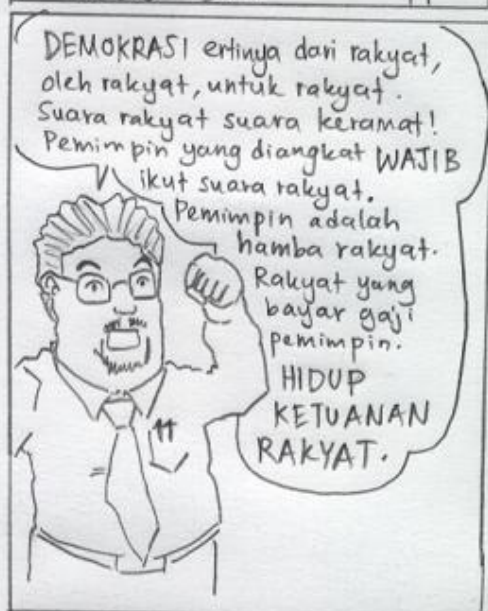 DEMOKRASI ertinya dari rakyat,
oleh rakyat, untuk rakyat.
Suara rakyat suara keramat!
Pemimpin yang diangkat WAJIB
ikut suara rakyat.
Pemimpin adalah
hamba rakyat.
Rakyat yang
bayar gaji
pemimpin.
HIDUP
KETUANAN
RAKYAT.